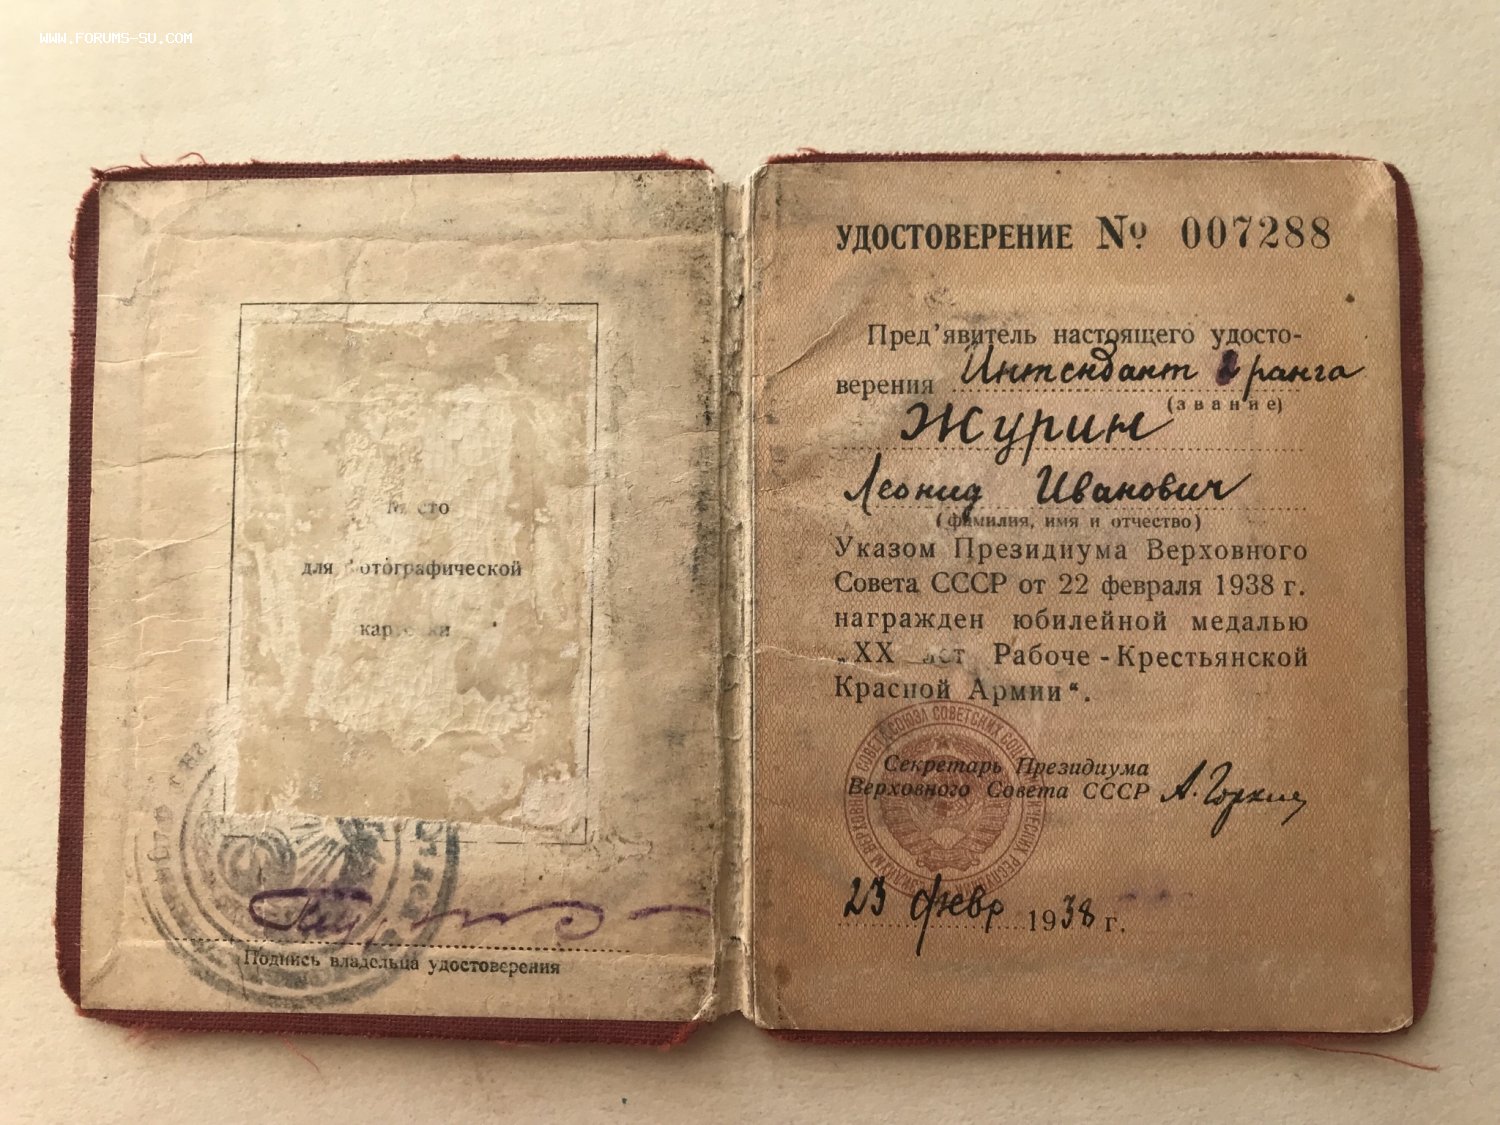 WWW.FORUMS-SU.COM
Место
для фотографической
карточки
Подпись владельца удостоверения
УДОСТОВЕРЕНИЕ № 007288
Пред'явитель настоящего удосто-
верения Интендант 2 ранга
(звание)
Журин
Леонид Иванович
(фамилия, имя и отчество)
Указом Президиума Верховного
Совета СССР от 22 февраля 1938 г.
награжден юбилейной медалью
„XX лет Рабоче-Крестьянской
Красной Армии“.
Секретарь Президиума
Верховного Совета СССР А. Горкин
23 февр 1938 г.